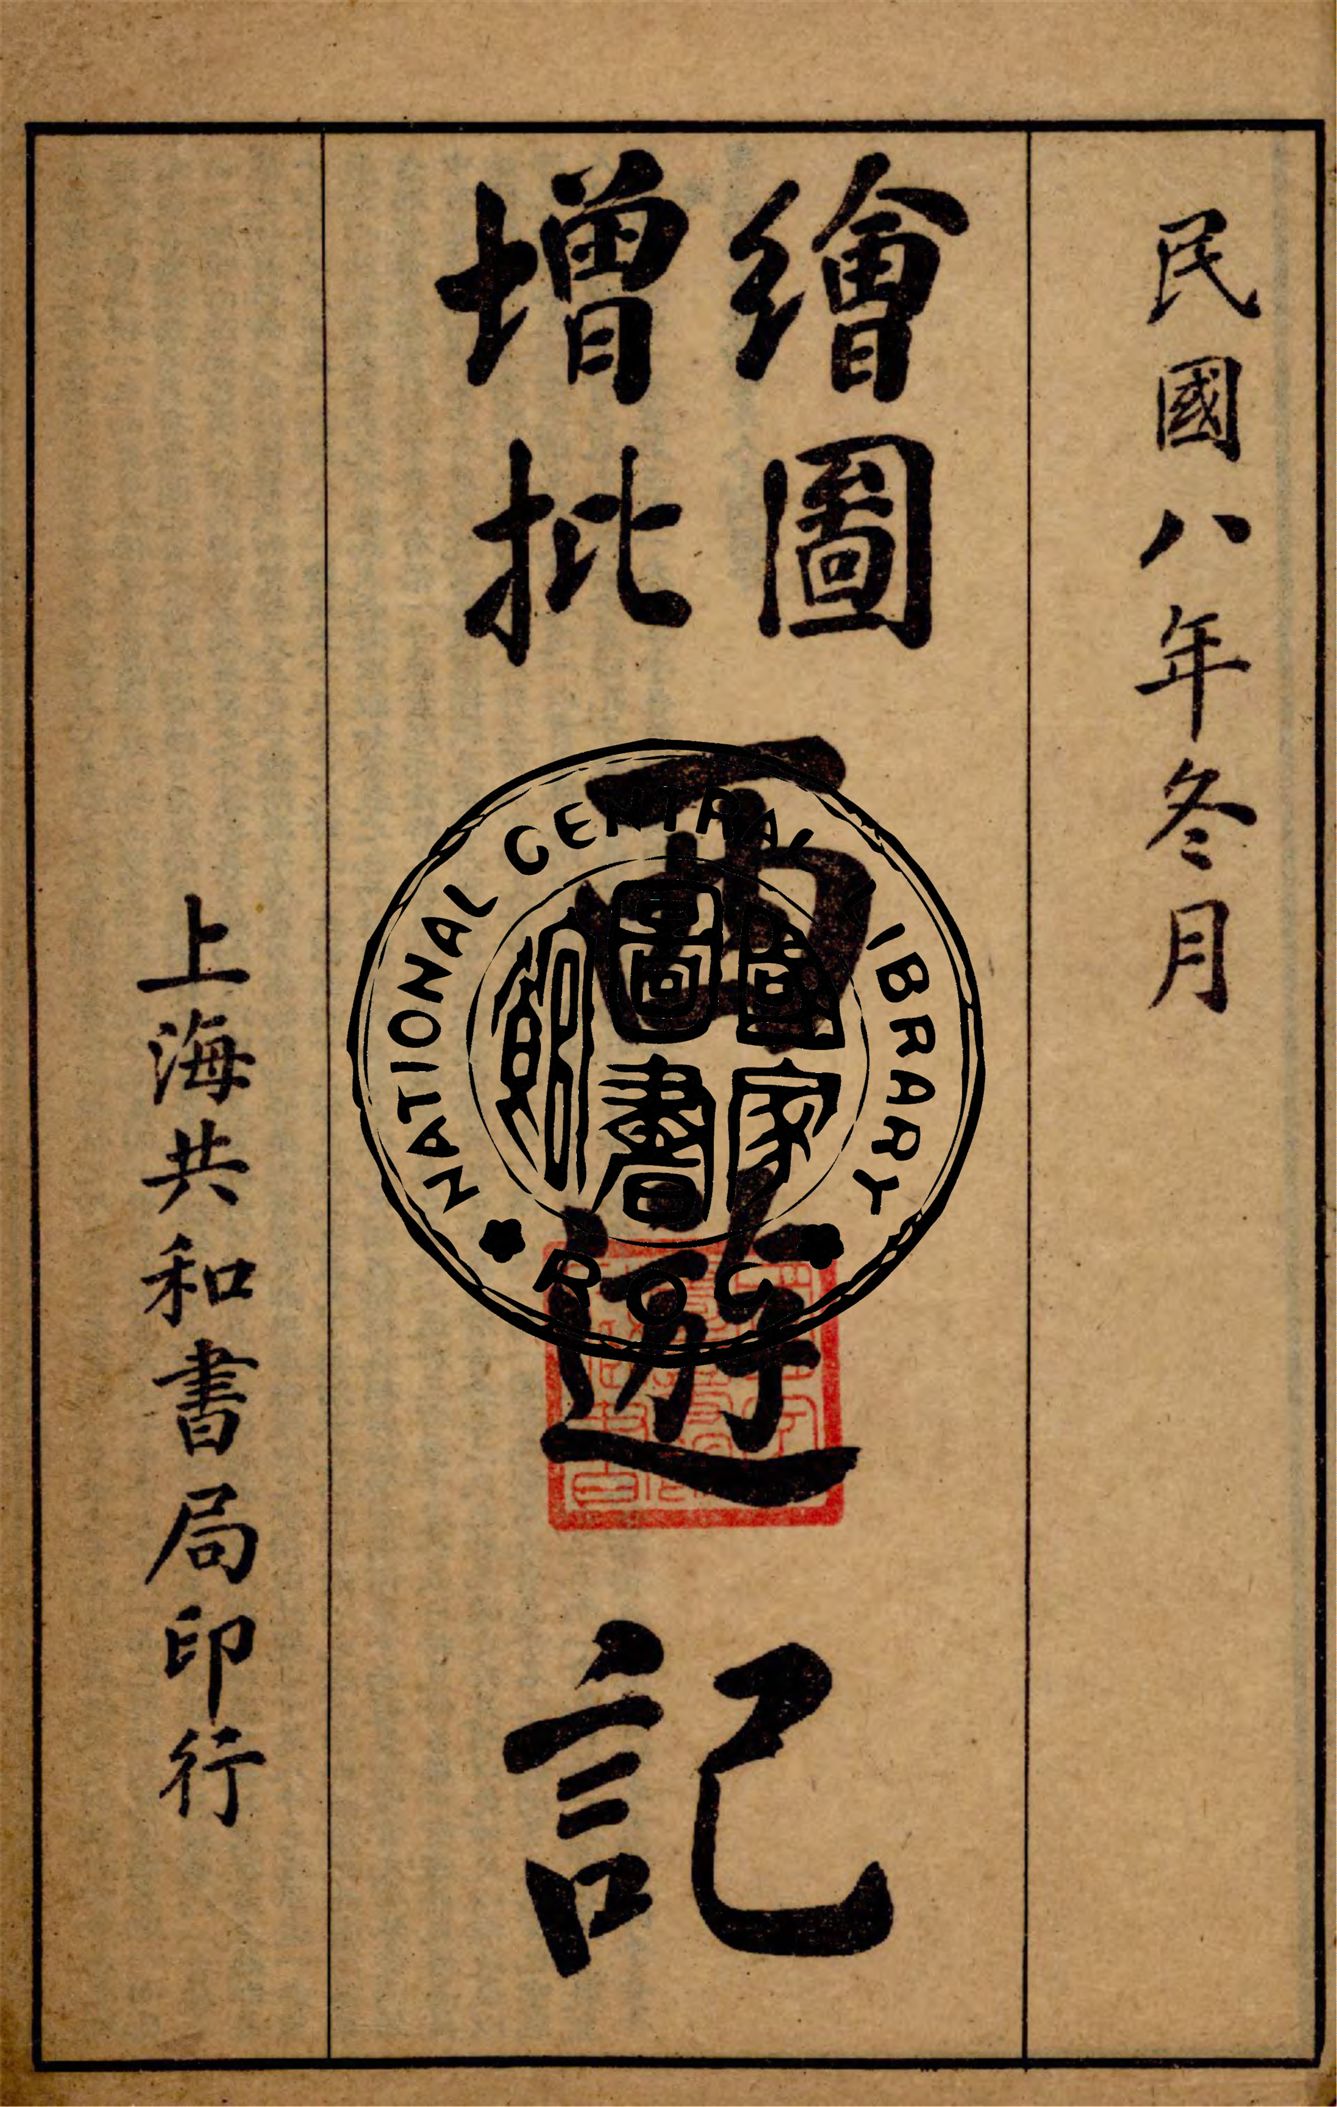 民國八年冬月
繪圖
增批
西遊記
上海共和書局印行
NATIONAL CENTRAL LIBRARY
R.O.C.
國家圖書館